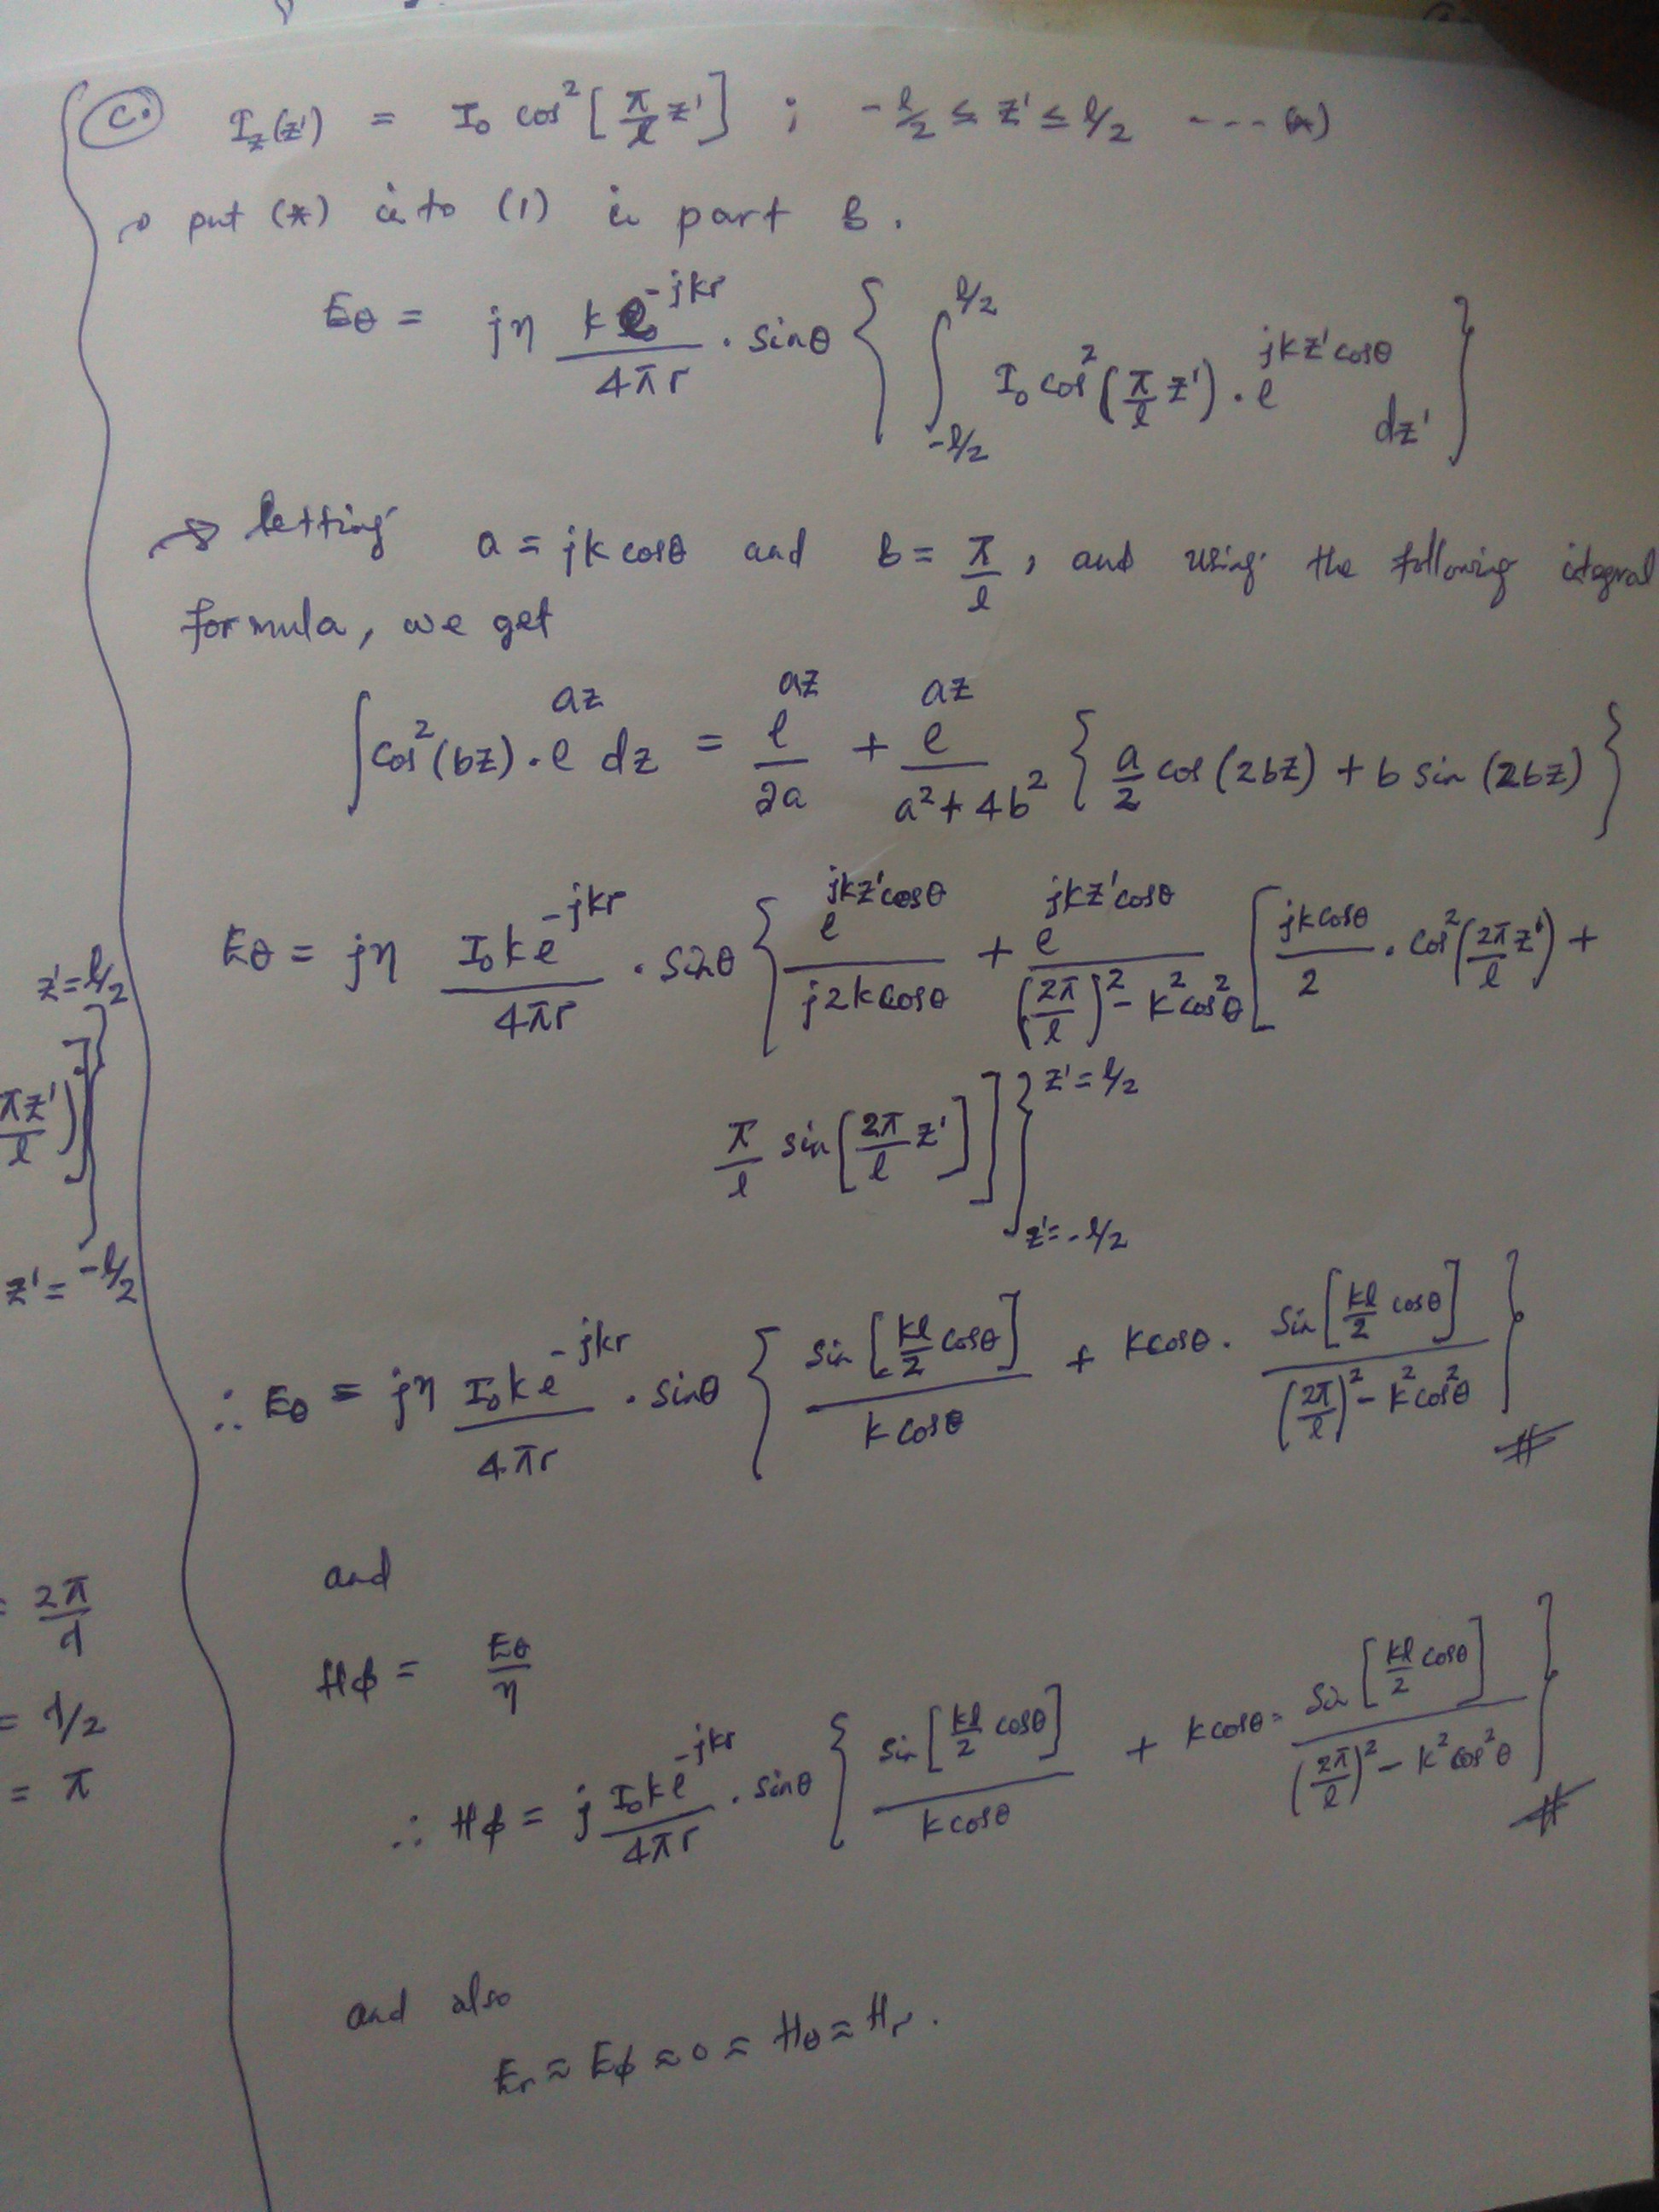 C. I_z(z') = I₀ cos²[π/l z'] ; -l/2 ≤ z' ≤ l/2 ---- (*)
put (*) into (1) in part B.
E_θ = jη k e^{-jkr} / 4πr · sinθ { ∫_{-l/2}^{l/2} I₀ cos²(π/l z') · e^{jkz'cosθ} dz' }
→ letting a = jk cosθ and b = π/l, and using the following integral
formula, we get
∫ cos²(bz) · e^{az} dz = e^{az}/2a + e^{az}/(a²+4b²) { a/2 cos(2bz) + b sin(2bz) }
E_θ = jη I₀ k e^{-jkr} / 4πr · sinθ { e^{jkz'cosθ} / j2k cosθ + e^{jkz'cosθ} / ((2π/l)² - k²cos²θ) [ jkcosθ/2 · cos²(2π/l z') +
π/l sin[2π/l z'] ] }_{z'=-l/2}^{z'=l/2}
∴ E_θ = jη I₀ k e^{-jkr} / 4πr · sinθ { sin[kl/2 cosθ] / k cosθ + k cosθ · sin[kl/2 cosθ] / ((2π/l)² - k²cos²θ) } #
and
H_φ = E_θ/η
∴ H_φ = j I₀ k e^{-jkr} / 4πr · sinθ { sin[kl/2 cosθ] / k cosθ + k cosθ · sin[kl/2 cosθ] / ((2π/l)² - k²cos²θ) } #
and also
E_r ≈ E_φ ≈ 0 ≈ H_θ ≈ H_r .
z'=l/2
πz'/l )]}
z'= -l/2
= 2π/λ
= λ/2
= π